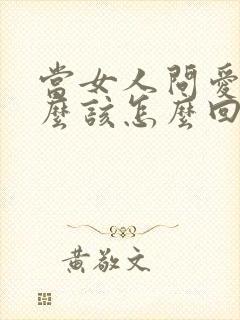 當女人問愛
麼該怎麼回
黃敬文